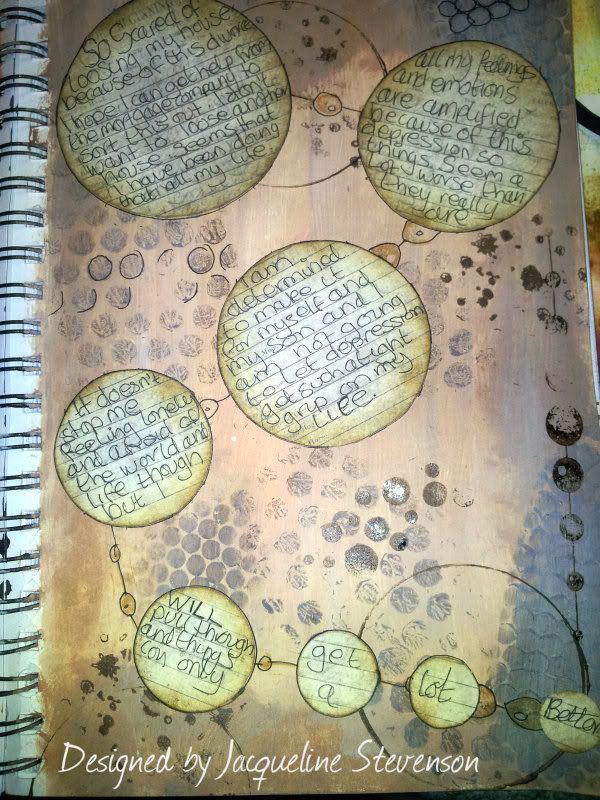 So Scared of
loosing my house
because of this divorce
hope I can get help from
the mortgage company to
sort this out. I don't
want to loose another
house seems that
I have been doing
that all my life
all my feelings
and emotions
are amplified
because of this
depression so
things seem a
lot worse than
they really
are
I am
determined
to make it
for myself and
my son and
am not going
to let depression
get such a tight
grip on my
life.
It doesn't
stop me
feeling lonely
and afraid of
the world and
life though
but I
Will
pull through
and things
can only
get
a
lot
Better
Designed by Jacqueline Stevenson